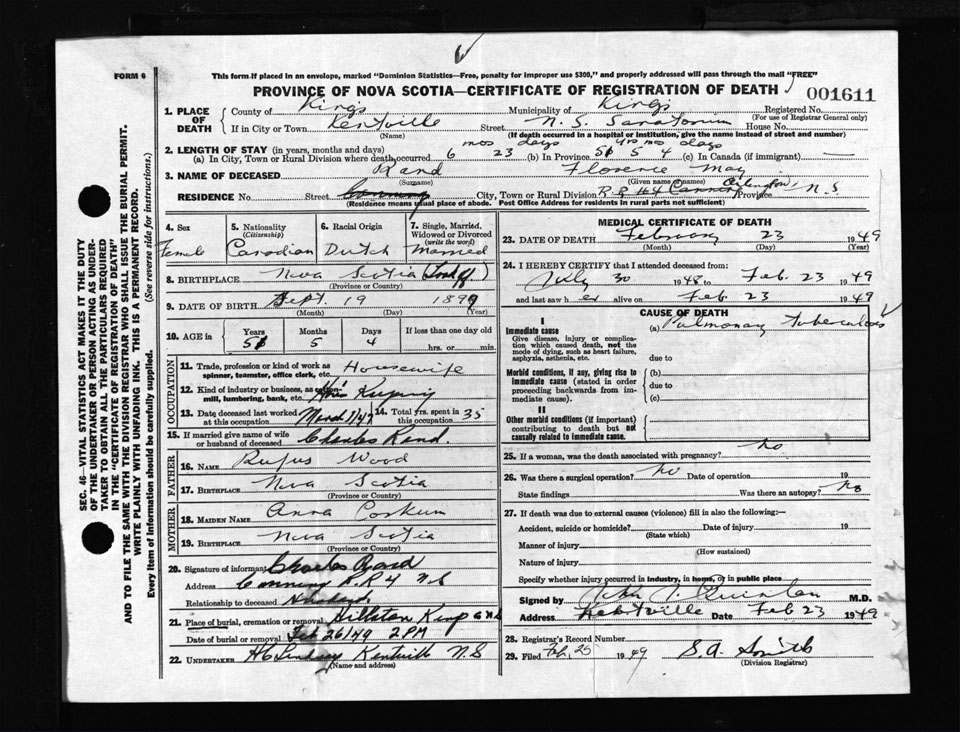 FORM 6
This form if placed in an envelope, marked "Dominion Statistics—Free, penalty for improper use $300," and properly addressed will pass through the mail "FREE"
PROVINCE OF NOVA SCOTIA—CERTIFICATE OF REGISTRATION OF DEATH
001611
1. PLACE OF DEATH
County of Kings Municipality of Kings Registered No.
(For use of Registrar General only)
If in City or Town Kentville Street N. S. Sanatorium House No.
(Name) (If death occurred in a hospital or institution, give the name instead of street and number)
2. LENGTH OF STAY (in years, months and days) mos days yrs mos days
(a) In City, Town or Rural Division where death occurred 6 23 (b) In Province 51 5 4 (c) In Canada (if immigrant) —
3. NAME OF DECEASED Rand Florence May
(Surname) (Given name or names)
RESIDENCE No. Street Canning City, Town or Rural Division R R #4 Canning Arlington, Province N.S
(Residence means usual place of abode. Post Office Address for residents in rural parts not sufficient)
4. Sex Female
5. Nationality (Citizenship) Canadian
6. Racial Origin Dutch
7. Single, Married, Widowed or Divorced (write the word) Married
8. BIRTHPLACE Nova Scotia
(Province or Country)
9. DATE OF BIRTH Sept. 19 1899
(Month) (Day) (Year)
10. AGE in Years Months Days If less than one day old
51 5 4 hrs. or min.
OCCUPATION
11. Trade, profession or kind of work as spinner, teamster, office clerk, etc. Housewife
12. Kind of industry or business, as cotton-mill, lumbering, bank, etc. Hse Keeping
13. Date deceased last worked at this occupation March 1/47 14. Total yrs. spent in this occupation 35
15. If married give name of wife or husband of deceased Charles Rand.
FATHER
16. NAME Rufus Wood
17. BIRTHPLACE Nova Scotia
(Province or Country)
MOTHER
18. MAIDEN NAME Anna Corkum
19. BIRTHPLACE Nova Scotia
(Province or Country)
20. Signature of informant Charles Rand
Address Canning R.R 4 N S
Relationship to deceased Husband
21. Place of burial, cremation or removal Hillaton Kings
Date of burial or removal Feb 26/49 2 PM
22. UNDERTAKER H C Lindsay Kentville N.S
(Name and address)
MEDICAL CERTIFICATE OF DEATH
23. DATE OF DEATH February 23 1949
(Month) (Day) (Year)
24. I HEREBY CERTIFY that I attended deceased from:
July 30 1948 to Feb. 23 1949
and last saw h er alive on Feb. 23 1949
CAUSE OF DEATH
I
Immediate cause (a) Pulmonary Tuberculosis
Give disease, injury or complication which caused death, not the mode of dying, such as heart failure, asphyxia, asthenia, etc.
due to
Morbid conditions, if any, giving rise to immediate cause (stated in order proceeding backwards from immediate cause).
(b)
due to
(c)
II
Other morbid conditions (if important) contributing to death but not causally related to immediate cause.
25. If a woman, was the death associated with pregnancy? No
26. Was there a surgical operation? No Date of operation 19
State findings Was there an autopsy? No
27. If death was due to external causes (violence) fill in also the following:—
Accident, suicide or homicide? Date of injury 19
(State which)
Manner of injury
(How sustained)
Nature of injury
Specify whether injury occurred in industry, in home, or in public place
Signed by John J. Quinlan M.D.
Address Kentville Date Feb 23 1949
28. Registrar's Record Number
29. Filed Feb, 25 1949 S. A. Smith
(Division Registrar)
SEC. 46—VITAL STATISTICS ACT MAKES IT THE DUTY
OF THE UNDERTAKER OR PERSON ACTING AS UNDER-
TAKER TO OBTAIN ALL THE PARTICULARS REQUIRED
IN THE "CERTIFICATE OF REGISTRATION OF DEATH"
AND TO FILE THE SAME WITH THE DIVISION REGISTRAR WHO SHALL ISSUE THE BURIAL PERMIT.
WRITE PLAINLY WITH UNFADING INK. THIS IS A PERMANENT RECORD.
Every item of information should be carefully supplied. (See reverse side for instructions.)